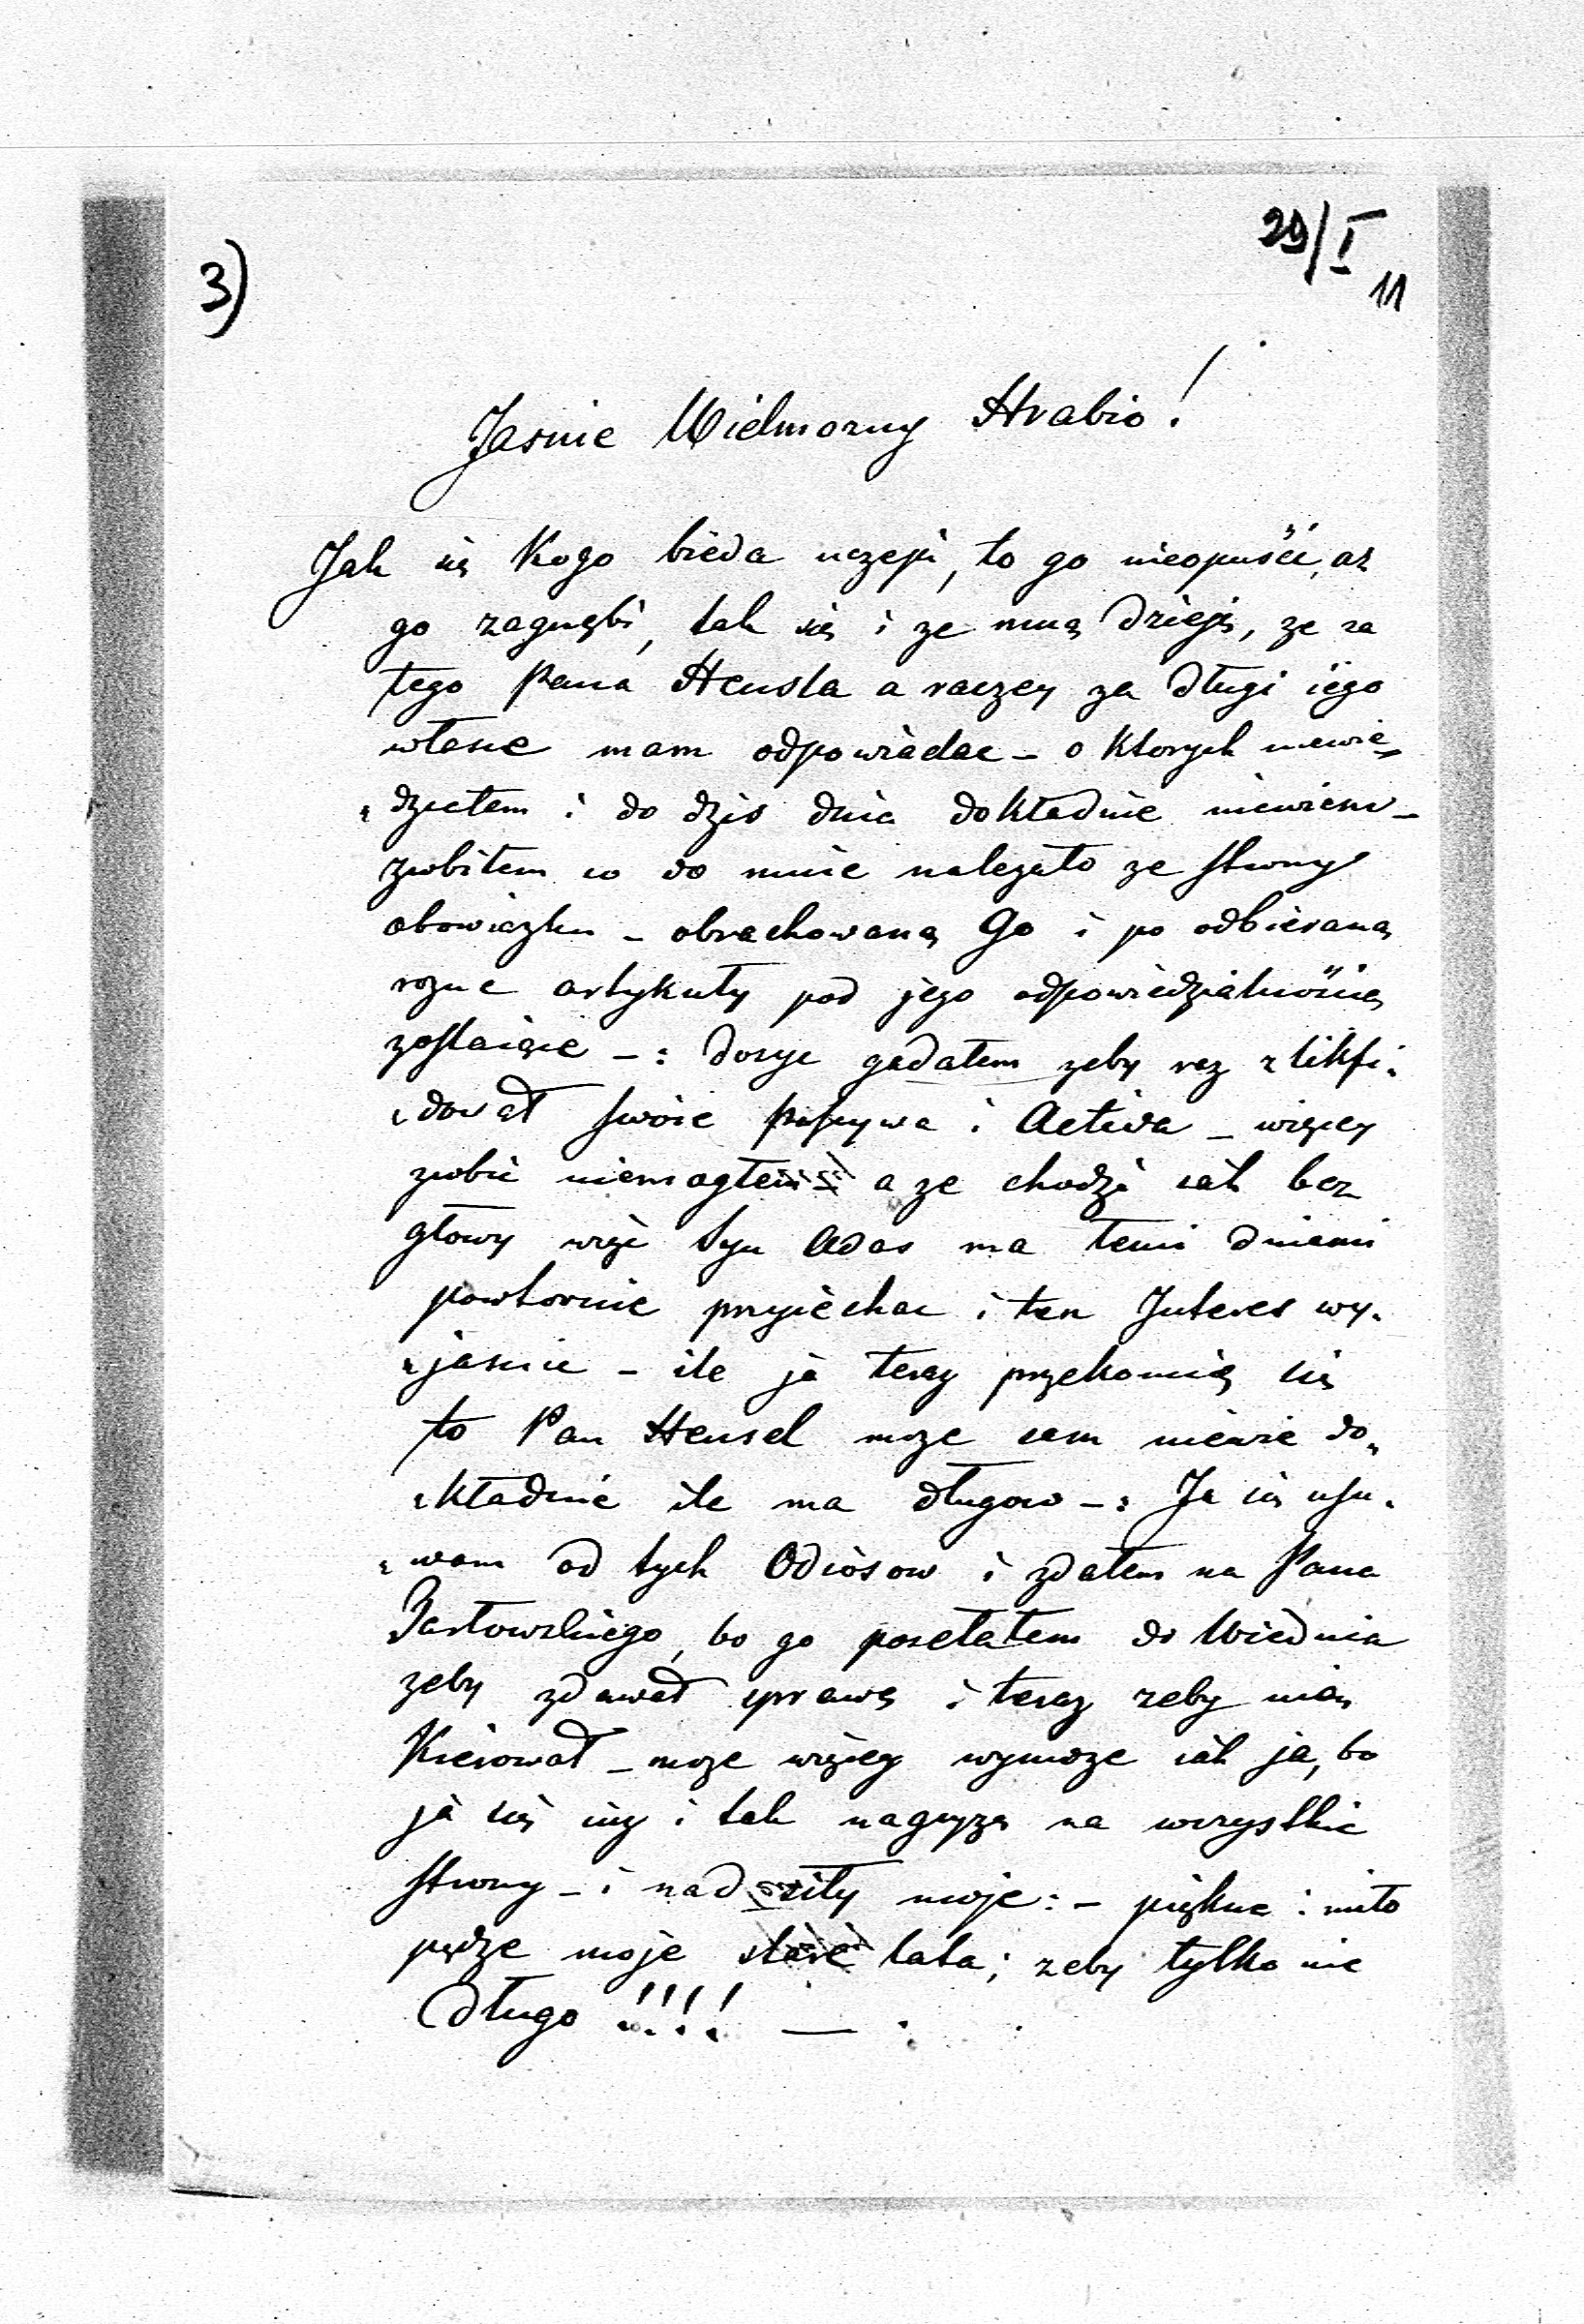 29/I 11
3)
Jasnie Wielmozny Hrabio!
Jak się Kogo bieda uczepi, to go nieopuści, aż
go zagnębi, tak się i ze mną dzieje, ze za
tego Pana Hensla a raczey za długi iego
własne mam odpowiadac – o Ktorych niewie-
dzielem i do dzis dnia dokładnie niewiem –
zrobiłem co do mnie nalezało ze strony
obowiązku – obrachowaną Go i po odbieraną
rozne artykuły pod jego odpowiedzialnością
zostaiące –: dosyc gadałem zeby raz zlikfi-
dował swoie passywa i Activa – więcey
zrobic niemogłem a ze chodzi iak bez
głowy więc syn Adas ma temi dniami
powtornie przyiechac i ten Interes wy-
jasnic – ile ja teraz przekonię się
to Pan Hensel moze sam niewie do-
kładnie ile ma długow –: Ja się usu-
wam od tych Odiosow i zdałem na Pana
bo go posełałem do Wiednia
zeby zdawał sprawę i teraz zeby nią
Kierował – moze więcey wymoze iak ja, bo
ja się iuz i tak nagryzę na wszystkie
strony – i nad siły moje: – piękne i miło
pędze moje stare lata; zeby tylko nie
długo !!!! — .